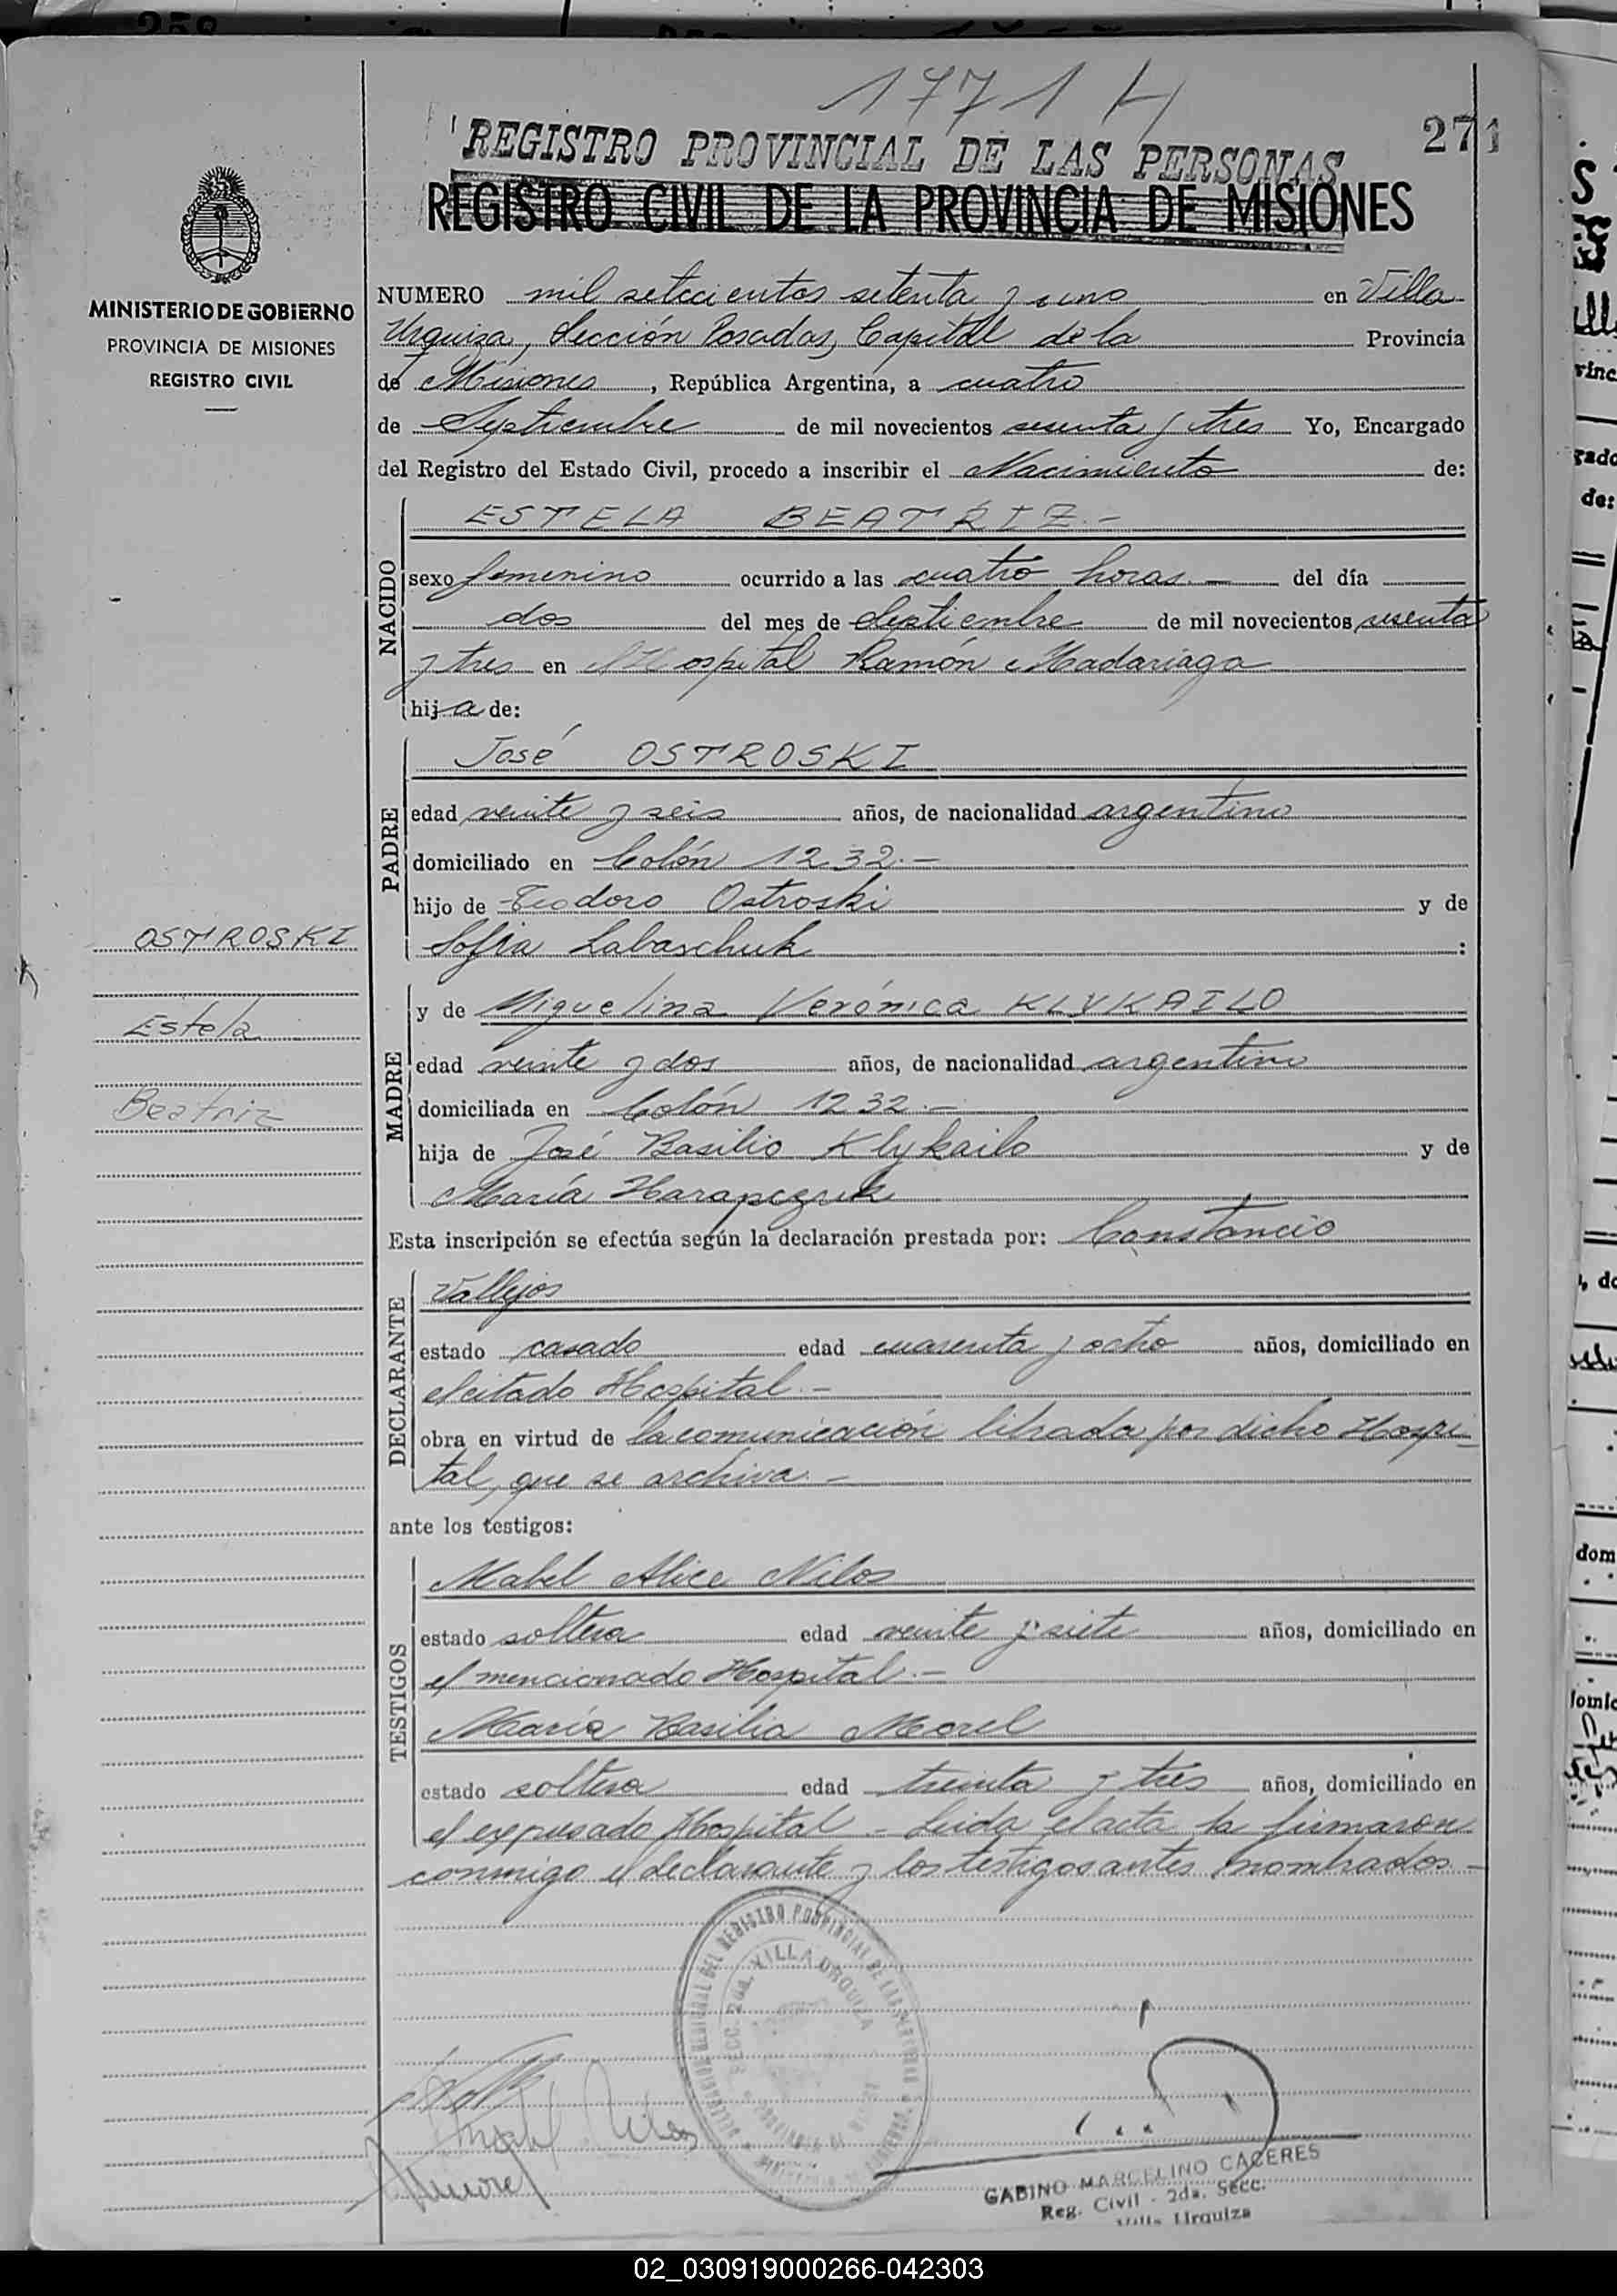 1771 H
271
REGISTRO PROVINCIAL DE LAS PERSONAS
REGISTRO CIVIL DE LA PROVINCIA DE MISIONES
MINISTERIO DE GOBIERNO
PROVINCIA DE MISIONES
REGISTRO CIVIL
NUMERO mil setecientos setenta y uno en Villa
Urquiza, Sección Posadas, Capital de la Provincia
de Misiones, República Argentina, a cuatro
de Septiembre de mil novecientos sesenta y tres Yo, Encargado
del Registro del Estado Civil, procedo a inscribir el Nacimiento de:
NACIDO
ESTELA BEATRIZ.-
sexo femenino ocurrido a las cuatro horas - del día
dos del mes de Septiembre de mil novecientos sesenta
y tres en Hospital Ramón Madariaga
hija de:
PADRE
José OSTROSKI
edad veinte y seis años, de nacionalidad argentino
domiciliado en Colón 1232.-
hijo de Teodoro Ostroski y de
Sofia Labaschuk :
OSTROSKI
Estela
Beatriz
MADRE
y de Miguelina Verónica KLYKAILO
edad veinte y dos años, de nacionalidad argentina
domiciliada en Colón 1232.-
hija de José Basilio Klykailo y de
María Harapczuk
Esta inscripción se efectúa según la declaración prestada por: Constancio
DECLARANTE
Vallejos
estado casado edad cuarenta y ocho años, domiciliado en
el citado Hospital.-
obra en virtud de la comunicación librada por dicho Hospi-
tal, que se archiva.-
ante los testigos:
TESTIGOS
Mabel Alice Nilos
estado soltera edad veinte y siete años, domiciliado en
el mencionado Hospital.-
María Basilia Morel
estado soltera edad treinta y tres años, domiciliado en
el expresado Hospital.- Leida el acta la firmaron
conmigo el declarante y los testigos antes nombrados.-
SECC. 2da. VILLA URQUIZA
GABINO MARCELINO CACERES
Reg. Civil - 2da. Secc.
Villa Urquiza
02_030919000266-042303